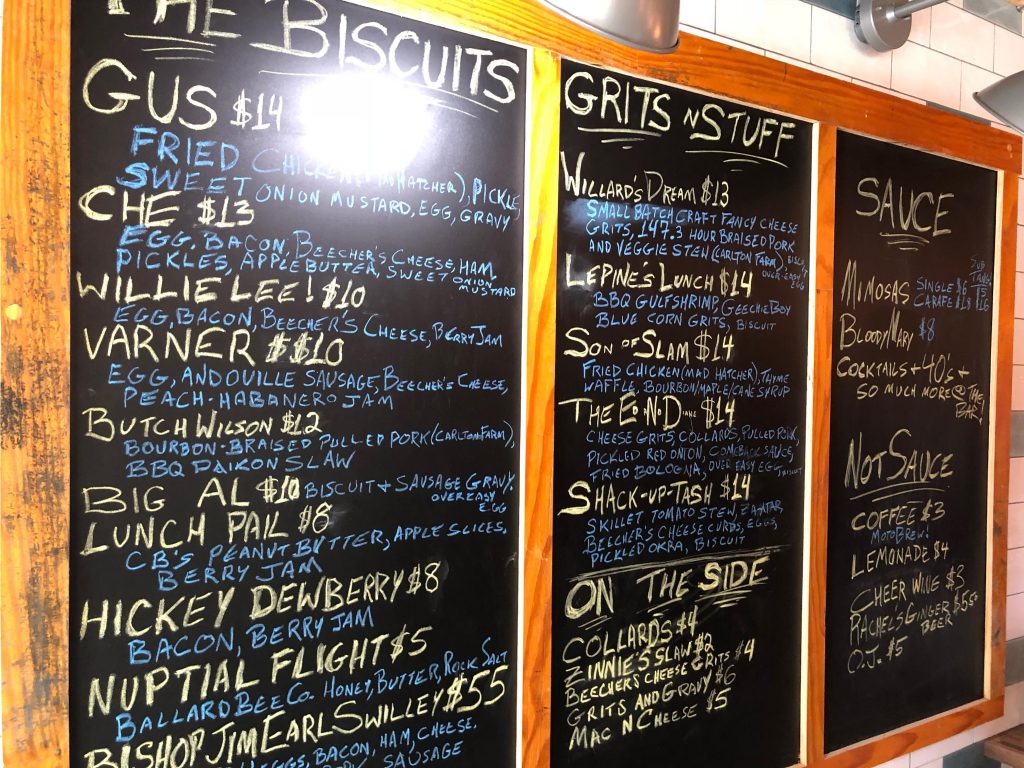 THE BISCUITS
GUS $14
FRIED CHICKEN (MAD HATCHER), PICKLE,
SWEET ONION MUSTARD, EGG, GRAVY
CHE $13
EGG, BACON, BEECHER'S CHEESE, HAM,
PICKLES, APPLE BUTTER, SWEET ONION MUSTARD
WILLIE LEE! $10
EGG, BACON, BEECHER'S CHEESE, BERRY JAM
VARNER $$10
EGG, ANDOUILLE SAUSAGE, BEECHER'S CHEESE,
PEACH-HABANERO JAM
BUTCH WILSON $12
BOURBON-BRAISED PULLED PORK (CARLTON FARM),
BBQ DAIKON SLAW
BIG AL $10 BISCUIT + SAUSAGE GRAVY,
OVER EASY EGG
LUNCH PAIL $8
CB'S PEANUT BUTTER, APPLE SLICES,
BERRY JAM
HICKEY DEWBERRY $8
BACON, BERRY JAM
NUPTIAL FLIGHT $5
BALLARD BEE CO. HONEY, BUTTER, ROCK SALT
BISHOP JIM EARL SWILLEY $55
EGGS, BACON, HAM, CHEESE,
SAUSAGE
GRITS N STUFF
WILLARD'S DREAM $13
SMALL BATCH CRAFT FANCY CHEESE
GRITS, 147.3 HOUR BRAISED PORK
AND VEGGIE STEW (CARLTON FARM), BISCUIT
OVER-EASY EGG
LEPINE'S LUNCH $14
BBQ GULF SHRIMP, GEECHIE BOY
BLUE CORN GRITS, BISCUIT
SON OF SLAM $14
FRIED CHICKEN (MAD HATCHER), THYME
WAFFLE, BOURBON/MAPLE/CANE SYRUP
THE E·N·D $14
CHEESE GRITS, COLLARDS, PULLED PORK,
PICKLED RED ONION, COMEBACK SAUCE,
FRIED BOLOGNA, OVER EASY EGG, BISCUIT
SHACK-UP-TASH $14
SKILLET TOMATO STEW, ZA'ATAR,
BEECHER'S CHEESE CURDS, EGGS,
PICKLED OKRA, BISCUIT
ON THE SIDE
COLLARDS $4
ZINNIE'S SLAW $2
BEECHER'S CHEESE GRITS $4
GRITS AND GRAVY $6
MAC N CHEESE $5
SAUCE
MIMOSAS SINGLE $6
CARAFE $18
BLOODY MARY $8
COCKTAILS + 40'S +
SO MUCH MORE @ THE BAR!
NOT SAUCE
COFFEE $3
MOTOBREW!
LEMONADE $4
CHEER WINE $3
RACHEL'S GINGER BEER $5.50
O.J. $5